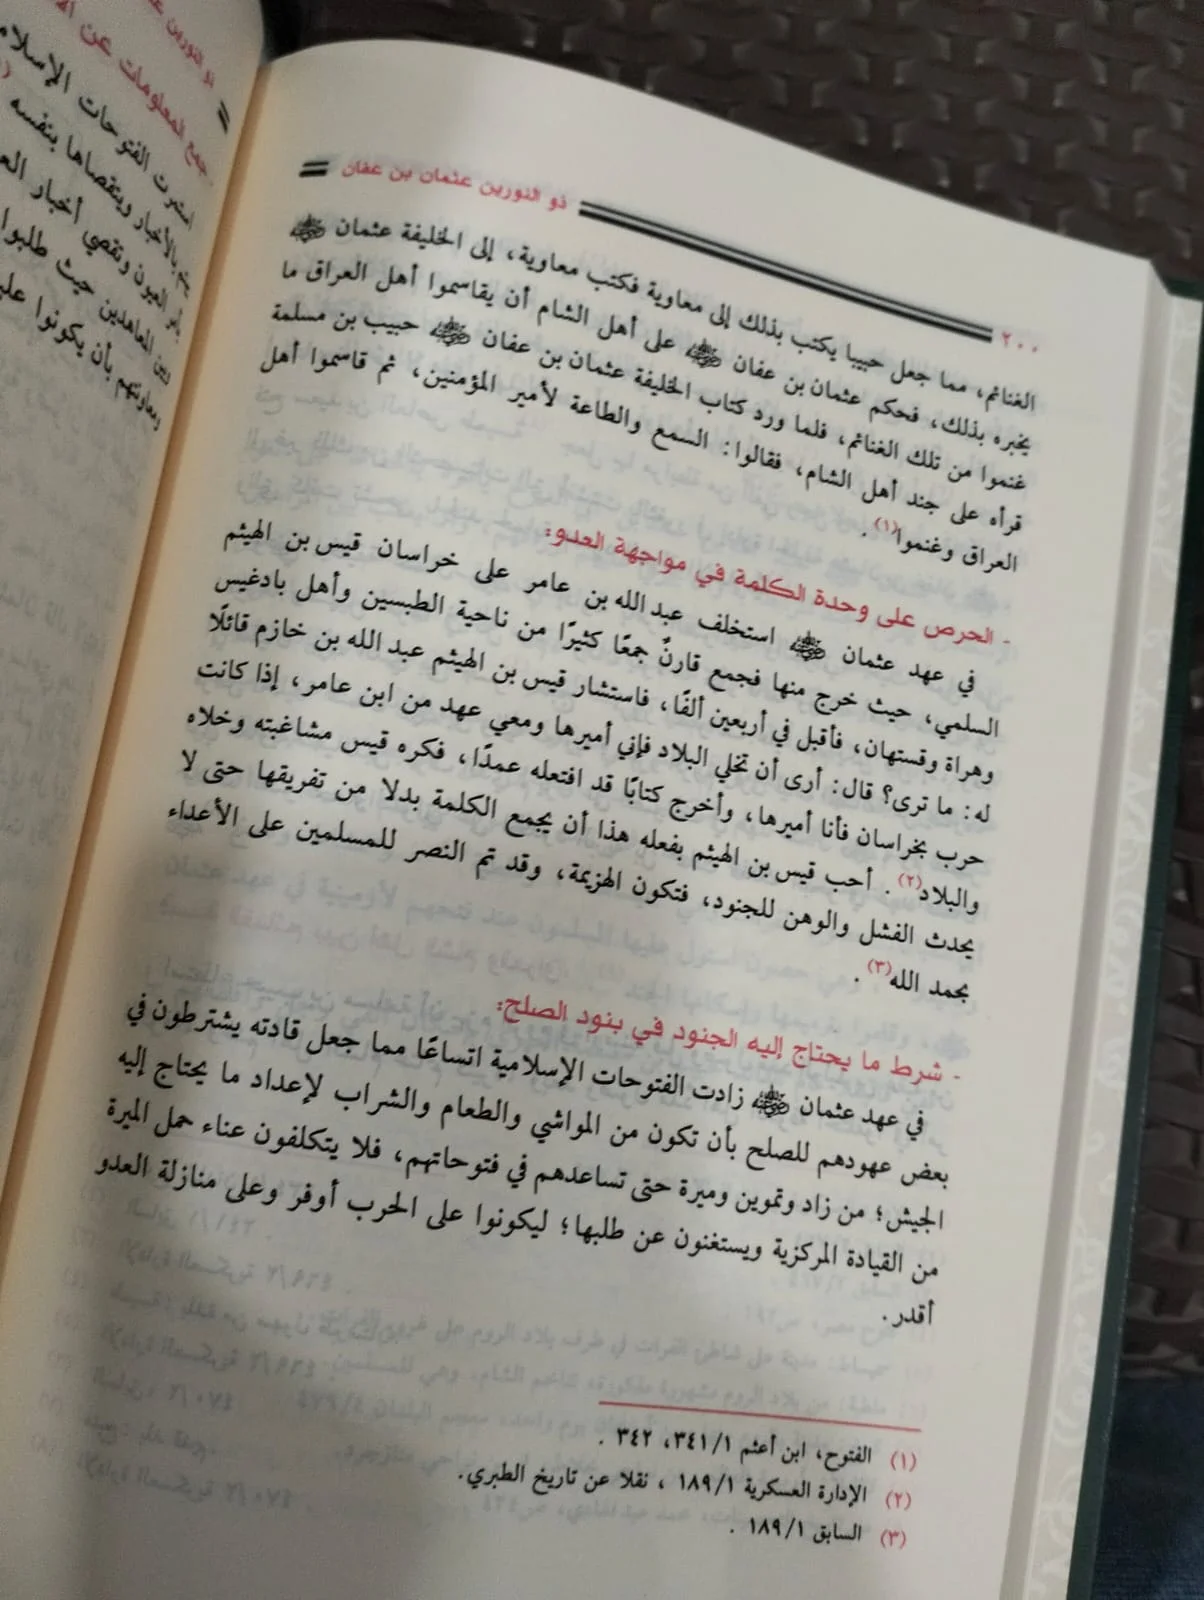 ٢٠٠
ذو النورين عثمان بن عفان
الغنائم، مما جعل حبيبا يكتب بذلك إلى معاوية فكتب معاوية، إلى الخليفة عثمان رضي الله عنه
يخبره بذلك، فحكم عثمان بن عفان رضي الله عنه على أهل الشام أن يقاسموا أهل العراق ما
غنموا من تلك الغنائم، فلما ورد كتاب الخليفة عثمان بن عفان رضي الله عنه حبيب بن مسلمة
قرأه على جند أهل الشام، فقالوا: السمع والطاعة لأمير المؤمنين، ثم قاسموا أهل
العراق وغنموا(١) .
- الحرص على وحدة الكلمة في مواجهة العدو:
في عهد عثمان رضي الله عنه استخلف عبد الله بن عامر على خراسان قيس بن الهيثم
السلمي، حيث خرج منها فجمع قارنٌ جمعًا كثيرًا من ناحية الطبسين وأهل بادغيس
وهراة وقستهان، فأقبل في أربعين ألفًا، فاستشار قيس بن الهيثم عبد الله بن خازم قائلًا
له: ما ترى؟ قال: أرى أن تخلي البلاد فإني أميرها ومعي عهد من ابن عامر، إذا كانت
حرب بخراسان فأنا أميرها، وأخرج كتابًا قد افتعله عمدًا، فكره قيس مشاغبته وخلاه
والبلاد(٢) . أحب قيس بن الهيثم بفعله هذا أن يجمع الكلمة بدلا من تفريقها حتى لا
يحدث الفشل والوهن للجنود، فتكون الهزيمة، وقد تم النصر للمسلمين على الأعداء
بحمد الله(٣) .
- شرط ما يحتاج إليه الجنود في بنود الصلح:
في عهد عثمان رضي الله عنه زادت الفتوحات الإسلامية اتساعًا مما جعل قادته يشترطون في
بعض عهودهم للصلح بأن تكون من المواشي والطعام والشراب لإعداد ما يحتاج إليه
الجيش؛ من زاد وتموين وميرة حتى تساعدهم في فتوحاتهم، فلا يتكلفون عناء حمل الميرة
من القيادة المركزية ويستغنون عن طلبها؛ ليكونوا على الحرب أوفر وعلى منازلة العدو
أقدر.
(١) الفتوح، ابن أعثم ٣٤١/١، ٣٤٢ .
(٢) الإدارة العسكرية ١٨٩/١ ، نقلا عن تاريخ الطبري.
(٣) السابق ١٨٩/١ .
ذو النورين
جمع المعلومات عن
استمرت الفتوحات
بالأخبار ويتقصاها بنفسه
العيون وتقصي أخبار
المعاهدين حيث طلبوا
ومعاونتهم بأن يكونوا